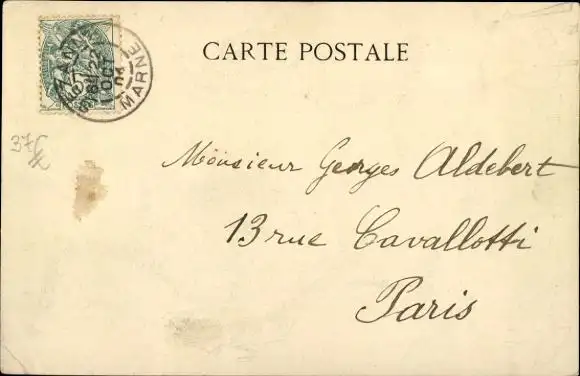 CARTE POSTALE
SÉZANNE
22
OCT
04
MARNE
37
Monsieur Georges Aldebert
13 rue Cavallotti
Paris